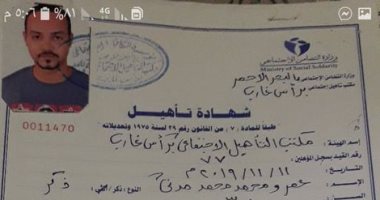 ٨١% ٥:٠٦ م
وزارة التضامن الاجتماعي
Ministry of Social Solidarity
وزارة التضامن الاجتماعي بالبحر الأحمر
مكتب تأهيل اجتماعي برأس غارب
شهادة تأهيل
طبقا للمادة : ٧ : من القانون رقم ٣٩ لسنة ١٩٧٥ وتعديلاته
0011470
الهيئة : مكتب التأهيل الاجتماعي برأس غارب
رقم القيد بسجل المؤهلين : ٧٧
التاريخ : ١١ / ١١ / ٢٠١٩ م
الاسم : عمرو محمد محمد مدني النوع : ذكر / أنثى : ذكر